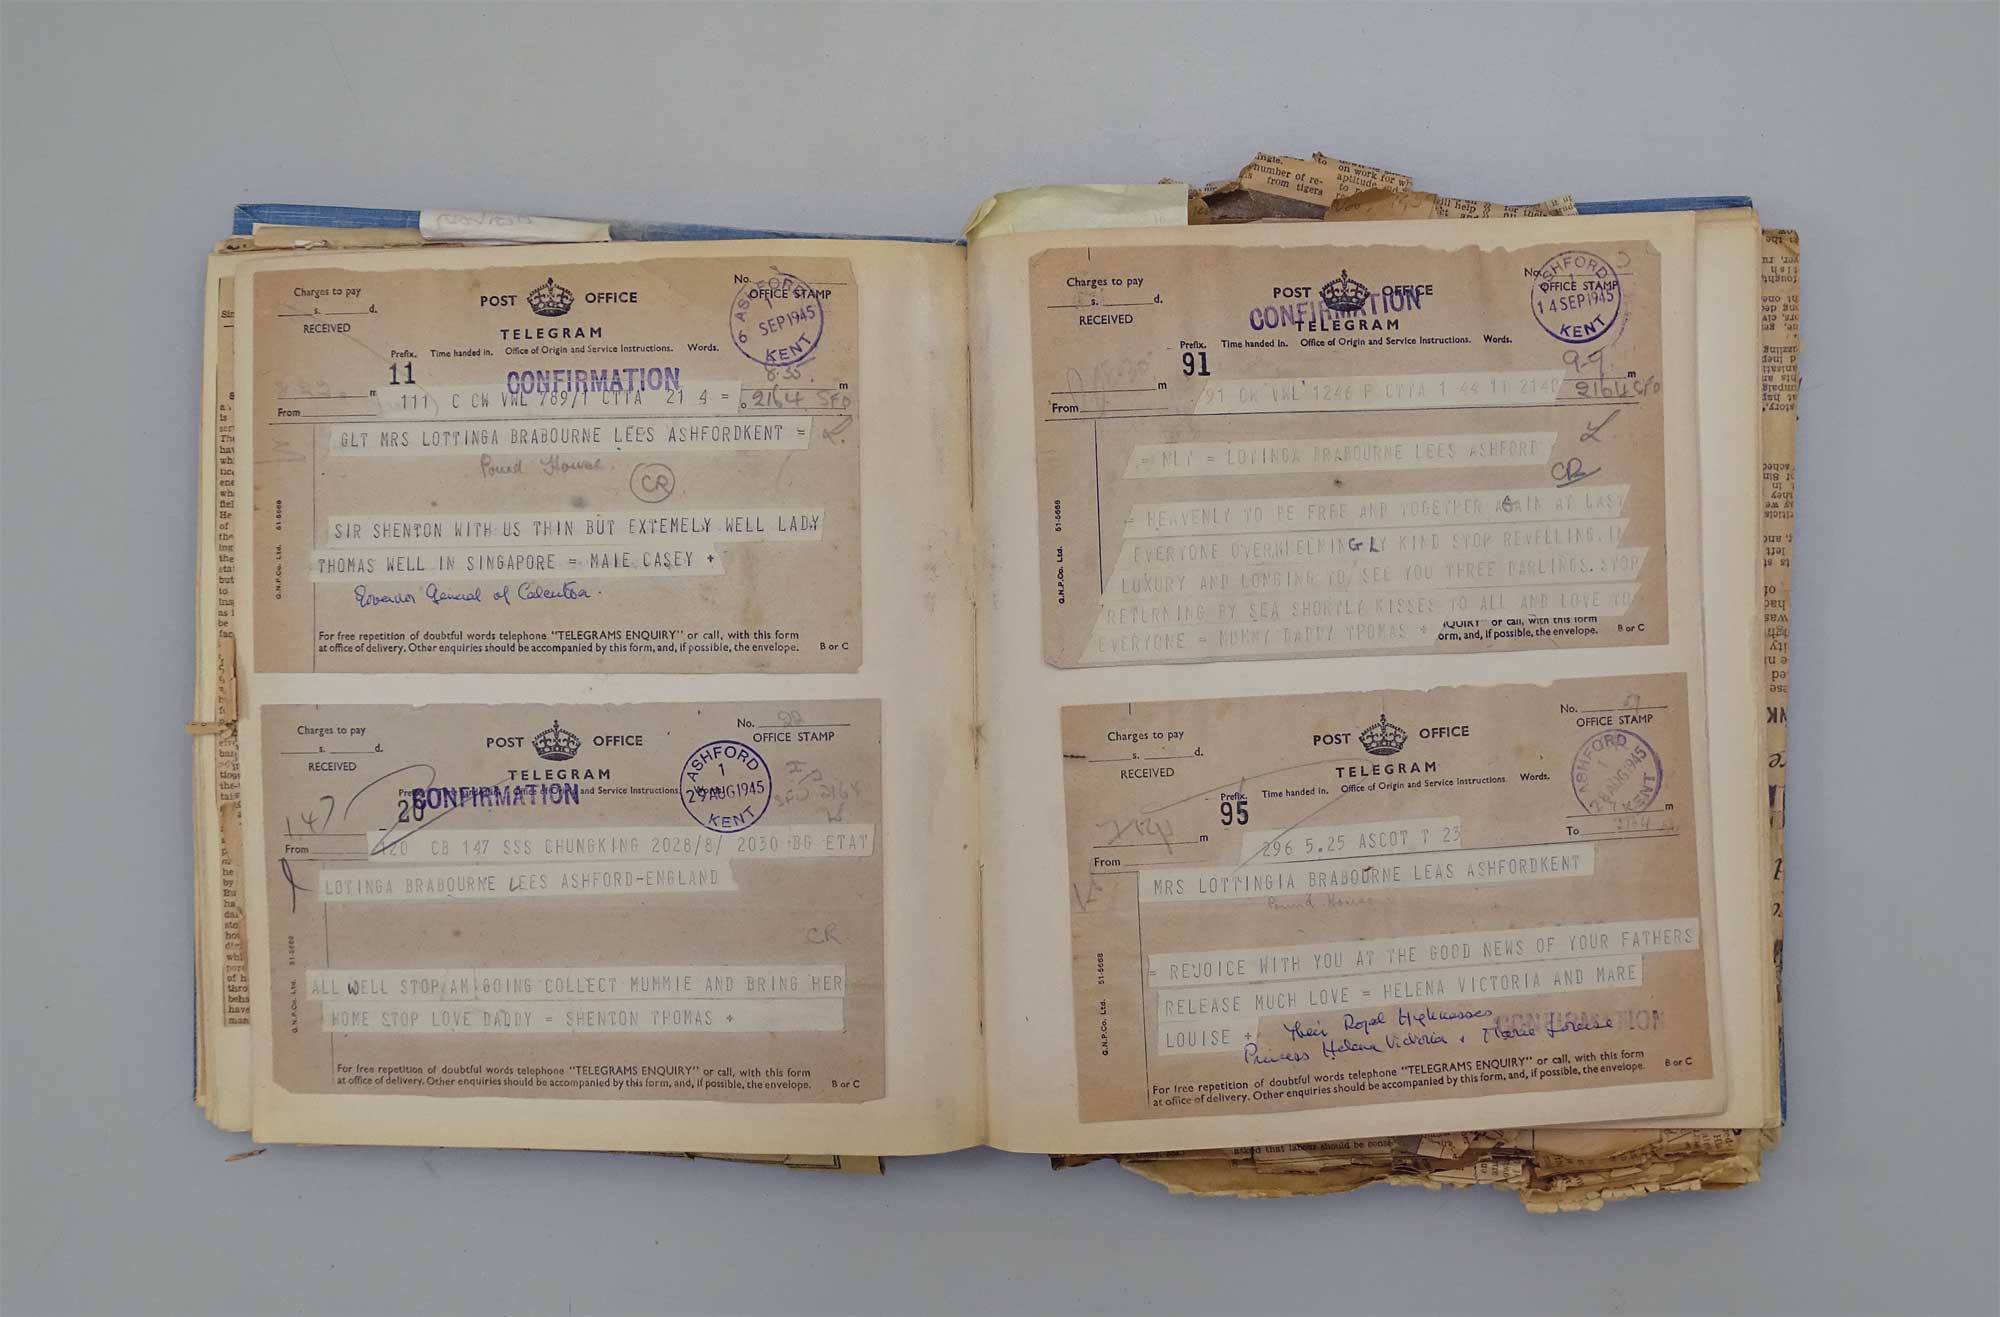 Charges to pay
s. d.
RECEIVED
POST OFFICE
TELEGRAM
No.
OFFICE STAMP
ASHFORD
1
SEP 1945
KENT
Prefix. Time handed in. Office of Origin and Service Instructions. Words.
11
CONFIRMATION
8.35
m
m
From
111 C CW VWL 789/1 CTTA 21 4 =
2164 SFO
GLT MRS LOTTINGA BRABOURNE LEES ASHFORDKENT =
Pound House
CR
SIR SHENTON WITH US THIN BUT EXTEMELY WELL LADY
THOMAS WELL IN SINGAPORE = MAIE CASEY +
Governor General of Calcutta.
For free repetition of doubtful words telephone "TELEGRAMS ENQUIRY" or call, with this form
at office of delivery. Other enquiries should be accompanied by this form, and, if possible, the envelope.
B or C
G.N.P.Co. Ltd. 51-5668
Charges to pay
s. d.
RECEIVED
POST OFFICE
TELEGRAM
No. 22
OFFICE STAMP
ASHFORD
1
29 AUG 1945
KENT
Office of Origin and Service Instructions.
20
CONFIRMATION
147
From
120 CB 147 SSS CHUNGKING 2028/8/ 2030 BG ETAT
LOTINGA BRABOURNE LEES ASHFORD-ENGLAND
CR
ALL WELL STOP AM GOING COLLECT MUMMIE AND BRING HER
HOME STOP LOVE DADDY = SHENTON THOMAS +
For free repetition of doubtful words telephone "TELEGRAMS ENQUIRY" or call, with this form
at office of delivery. Other enquiries should be accompanied by this form, and, if possible, the envelope.
B or C
G.N.P.Co. Ltd. 51-5668
Charges to pay
s. d.
RECEIVED
POST OFFICE
TELEGRAM
CONFIRMATION
No.
OFFICE STAMP
ASHFORD
1
14 SEP 1945
KENT
Prefix. Time handed in. Office of Origin and Service Instructions. Words.
91
m
m
From
91 CW VWL 1246 P CTTA 1 44 11 2140
2164 SFO
= NLT = LOTINGA BRABOURNE LEES ASHFORD
CR
= HEAVENLY TO BE FREE AND TOGETHER AGAIN AT LAST
EVERYONE OVERWHELMINGLY KIND STOP REVELLING IN
LUXURY AND LONGING TO SEE YOU THREE DARLINGS STOP
RETURNING BY SEA SHORTLY KISSES TO ALL AND LOVE TO
EVERYONE = MUMMY DADDY THOMAS +
QUIRY" or call, with this form
orm, and, if possible, the envelope.
B or C
G.N.P.Co. Ltd. 51-5668
Charges to pay
s. d.
RECEIVED
POST OFFICE
TELEGRAM
No.
OFFICE STAMP
ASHFORD
1
28 AUG 1945
KENT
Prefix. Time handed in. Office of Origin and Service Instructions. Words.
95
m
m
From
To
296 5.25 ASCOT T 23
MRS LOTTINGIA BRABOURNE LEAS ASHFORDKENT
Pound House
= REJOICE WITH YOU AT THE GOOD NEWS OF YOUR FATHERS
RELEASE MUCH LOVE = HELENA VICTORIA AND MARE
LOUISE +
CONFIRMATION
Their Royal Highnesses
Princess Helena Victoria & Marie Louise
For free repetition of doubtful words telephone "TELEGRAMS ENQUIRY" or call, with this form
at office of delivery. Other enquiries should be accompanied by this form, and, if possible, the envelope.
B or C
G.N.P.Co. Ltd. 51-5668
number of re-
from tigers
on work for
aptitude